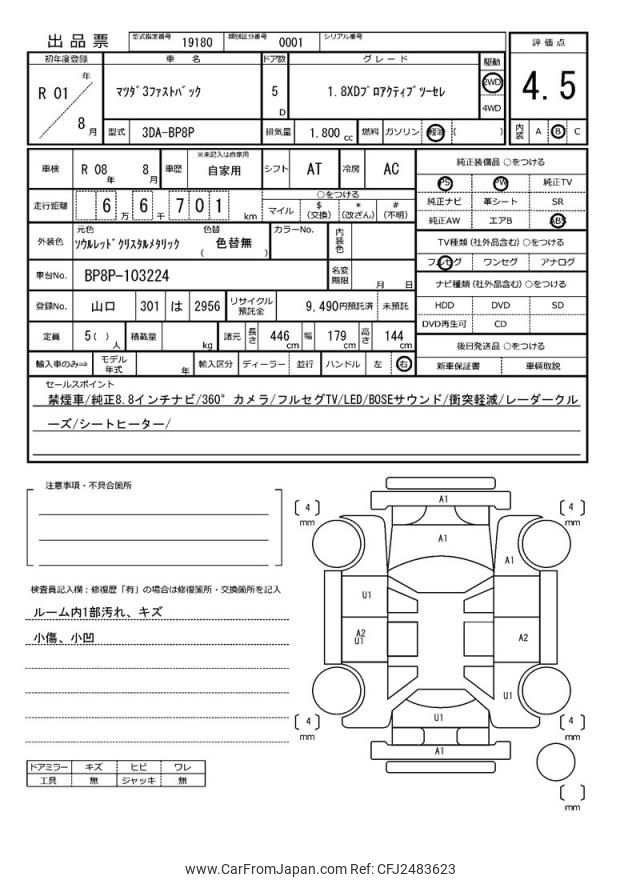 出品票
型式指定番号 19180 類別区分番号 0001 シリアル番号
評価点
4.5
内装 A B C
初年度登録 車名 ドア数 グレード 駆動
R 01 年 8 月
マツダ3ファストバック
5 D
1.8XDプロアクティブツーセレ
2WD
4WD
型式 3DA-BP8P 排気量 1,800 cc 燃料 ガソリン 軽油 ( )
車検 R 08 年 8 月 車歴 ※未記入は自家用 自家用 シフト AT 冷房 AC
走行距離 6 万 6 千 7 0 1 km
○をつける
マイル $(交換) *(改ざん) #(不明)
外装色 元色 ソウルレッドクリスタルメタリック 色替 ( 色替無 ) カラーNo. 内装色
車台No. BP8P-103224 名変期限 月 日
登録No. 山口 301 は 2956 リサイクル預託金 9,490円預託済 未預託
定員 5( )人 積載量 kg 諸元 長さ 446 cm 幅 179 cm 高さ 144 cm
輸入車のみ⇒ モデル年式 年 輸入区分 ディーラー 並行 ハンドル 左 右
純正装備品 ○をつける
PS PW 純正TV
純正ナビ 革シート SR
純正AW エアB ABS
TV種類(社外品含む)○をつける
フルセグ ワンセグ アナログ
ナビ種類(社外品含む)○をつける
HDD DVD SD
DVD再生可 CD
後日発送品 ○をつける
新車保証書 車輌取説
セールスポイント
禁煙車/純正8.8インチナビ/360°カメラ/フルセグTV/LED/BOSEサウンド/衝突軽減/レーダークル
ーズ/シートヒーター/
注意事項・不具合箇所
検査員記入欄:修復歴「有」の場合は修復箇所・交換箇所を記入
ルーム内1部汚れ、キズ
小傷、小凹
ドアミラー キズ ヒビ ワレ
工具 無 ジャッキ 無
A1
[ 4 ] mm
[ 4 ] mm
A1
A1
U1
A2
U1
A2
U1
U1
[ 4 ] mm
[ 4 ] mm
A1
[ ] mm
www.CarFromJapan.com Ref: CFJ2483623